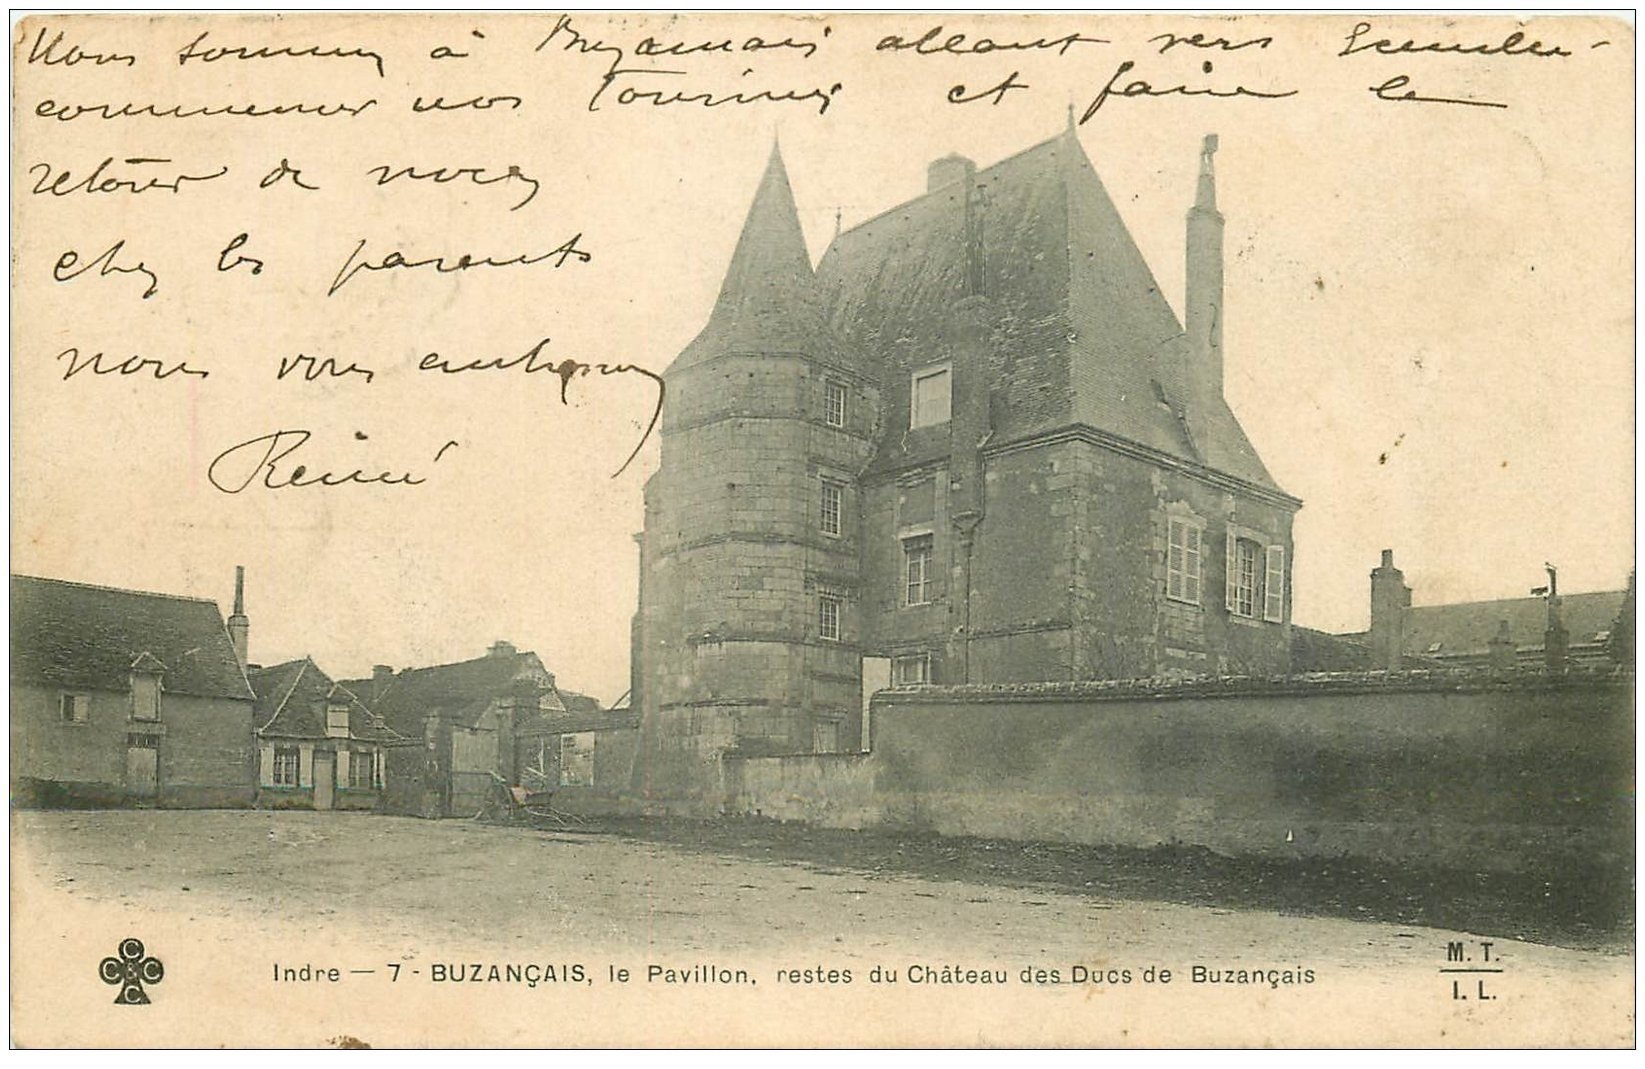 Nous sommes à Buzançais allant vers
commencer nos tournées et faire le
retour de noces
chez les parents
nous vous
René
CCCC
Indre — 7 - BUZANÇAIS, le Pavillon, restes du Château des Ducs de Buzançais
M. T.
I. L.